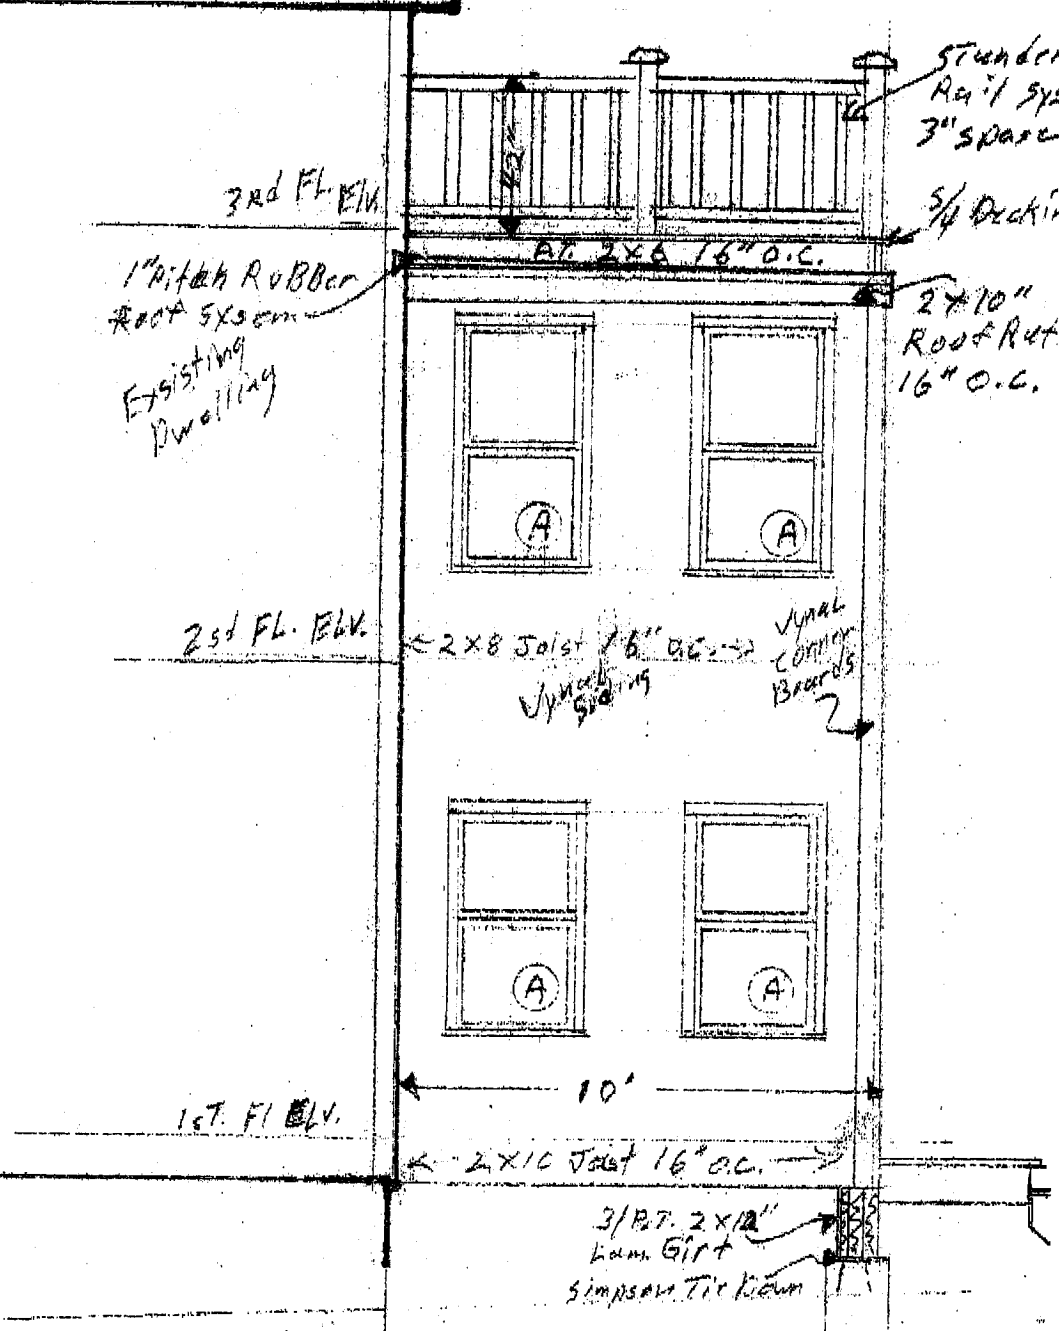 Rail sys
3" space
42"
3rd FL. Elv.
5/4 Deckin
P.T. 2x6 16" O.C.
1" Pitch RuBBer
Roof sysem
Exsisting
Dwelling
2x10"
Roof Raf
16" O.C.
A
A
2sd FL. ELV.
2x8 Joist 16" O.C.
Vynal
Siding
Vynal
Conner
Boards
A
A
10'
1sT. Fl ELV.
2x10 Joist 16" O.C.
3/P.T. 2x12"
Lam. Girt
Simpson Tie Down